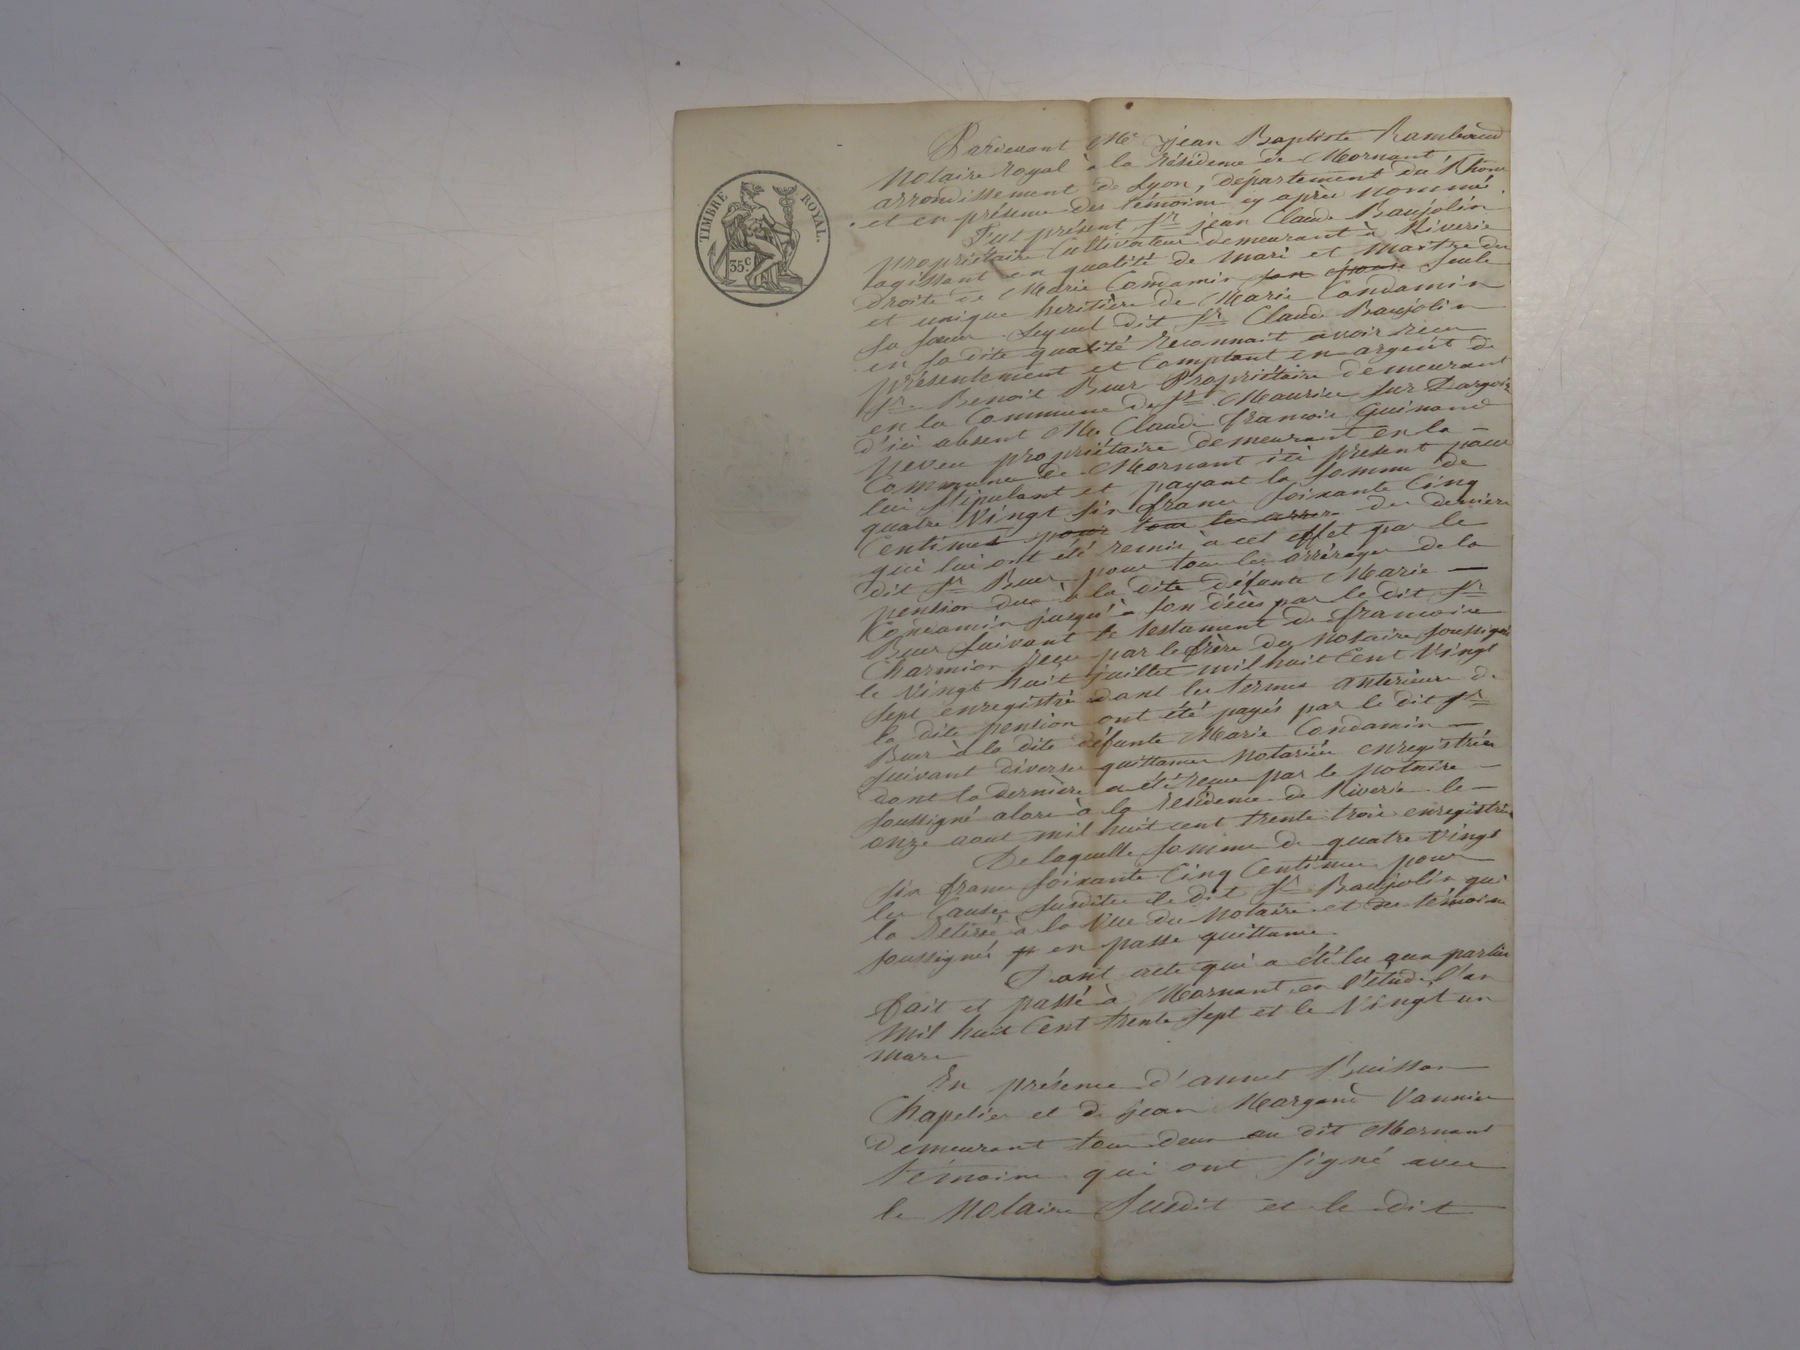 TIMBRE ROYAL.
35c
Pardevant Me jean Baptiste Rambaud
Notaire royal à la résidence de Mornant
arrondissement de Lyon, département du Rhône
et en présence des témoins cy après nommés.
Fut présent sr jean Claude Baujolin
propriétaire Cultivateur demeurant à Riverie
agissant en qualité de mari et maitre des
droits de Marie Condamin son épouse seule
et unique heritière de Marie Condamin
sa soeur. Lequel dit sr Claude Baujolin
en sa dite qualité reconnait avoir recu
présentement et Comptant en argent de
sr Benoit Buer Propriétaire demeurant
en la Commune de st Maurice sur Dargoire
d'ici absent Me Claude francois Guinand
neveu propriétaire demeurant en la
Commune de Mornant ici présent pour
lui stipulant et payant la somme de
quatre Vingt six francs soixante Cinq
Centimes pour tous les arrer des deniers
qui lui ont été remis à cet effet par le
dit sr Buer pour tous les arrérages de la
pension due à la dite défunte Marie
Condamin jusqu'à son décès par le dit sr
Buer suivant le testament de francoise
Charmion recu par le frère du Notaire soussigné
le Vingt huit juillet mil huit Cent Vingt
sept enregistré dont les termes anterieurs de
la dite pention ont été payés par le dit sr
Buer à la dite défunte Marie Condamin
suivant diverses quittances Notariées enregistrées
dont la dernière a été recue par le Notaire
soussigné alors à la résidence de Riverie le
onze aout mil huit cent trente trois enregistrée
De laquelle somme de quatre Vingt
six francs soixante Cinq Centimes pour
les Causes susdites le dit sr Baujolin qui
la retirée à la Vue du Notaire et des témoins
soussignés en passe quittance
Dont acte qui a été lu aux parties
fait et passé à Mornant en l'étude, l'an
mil huit Cent trente sept et le Vingt un
mars
En présence d'annet Buisson
Chapelier et de jean Margand Vannier
Demeurant tous deux au dit Mornant
témoins qui ont signé avec
le Notaire susdit et le dit